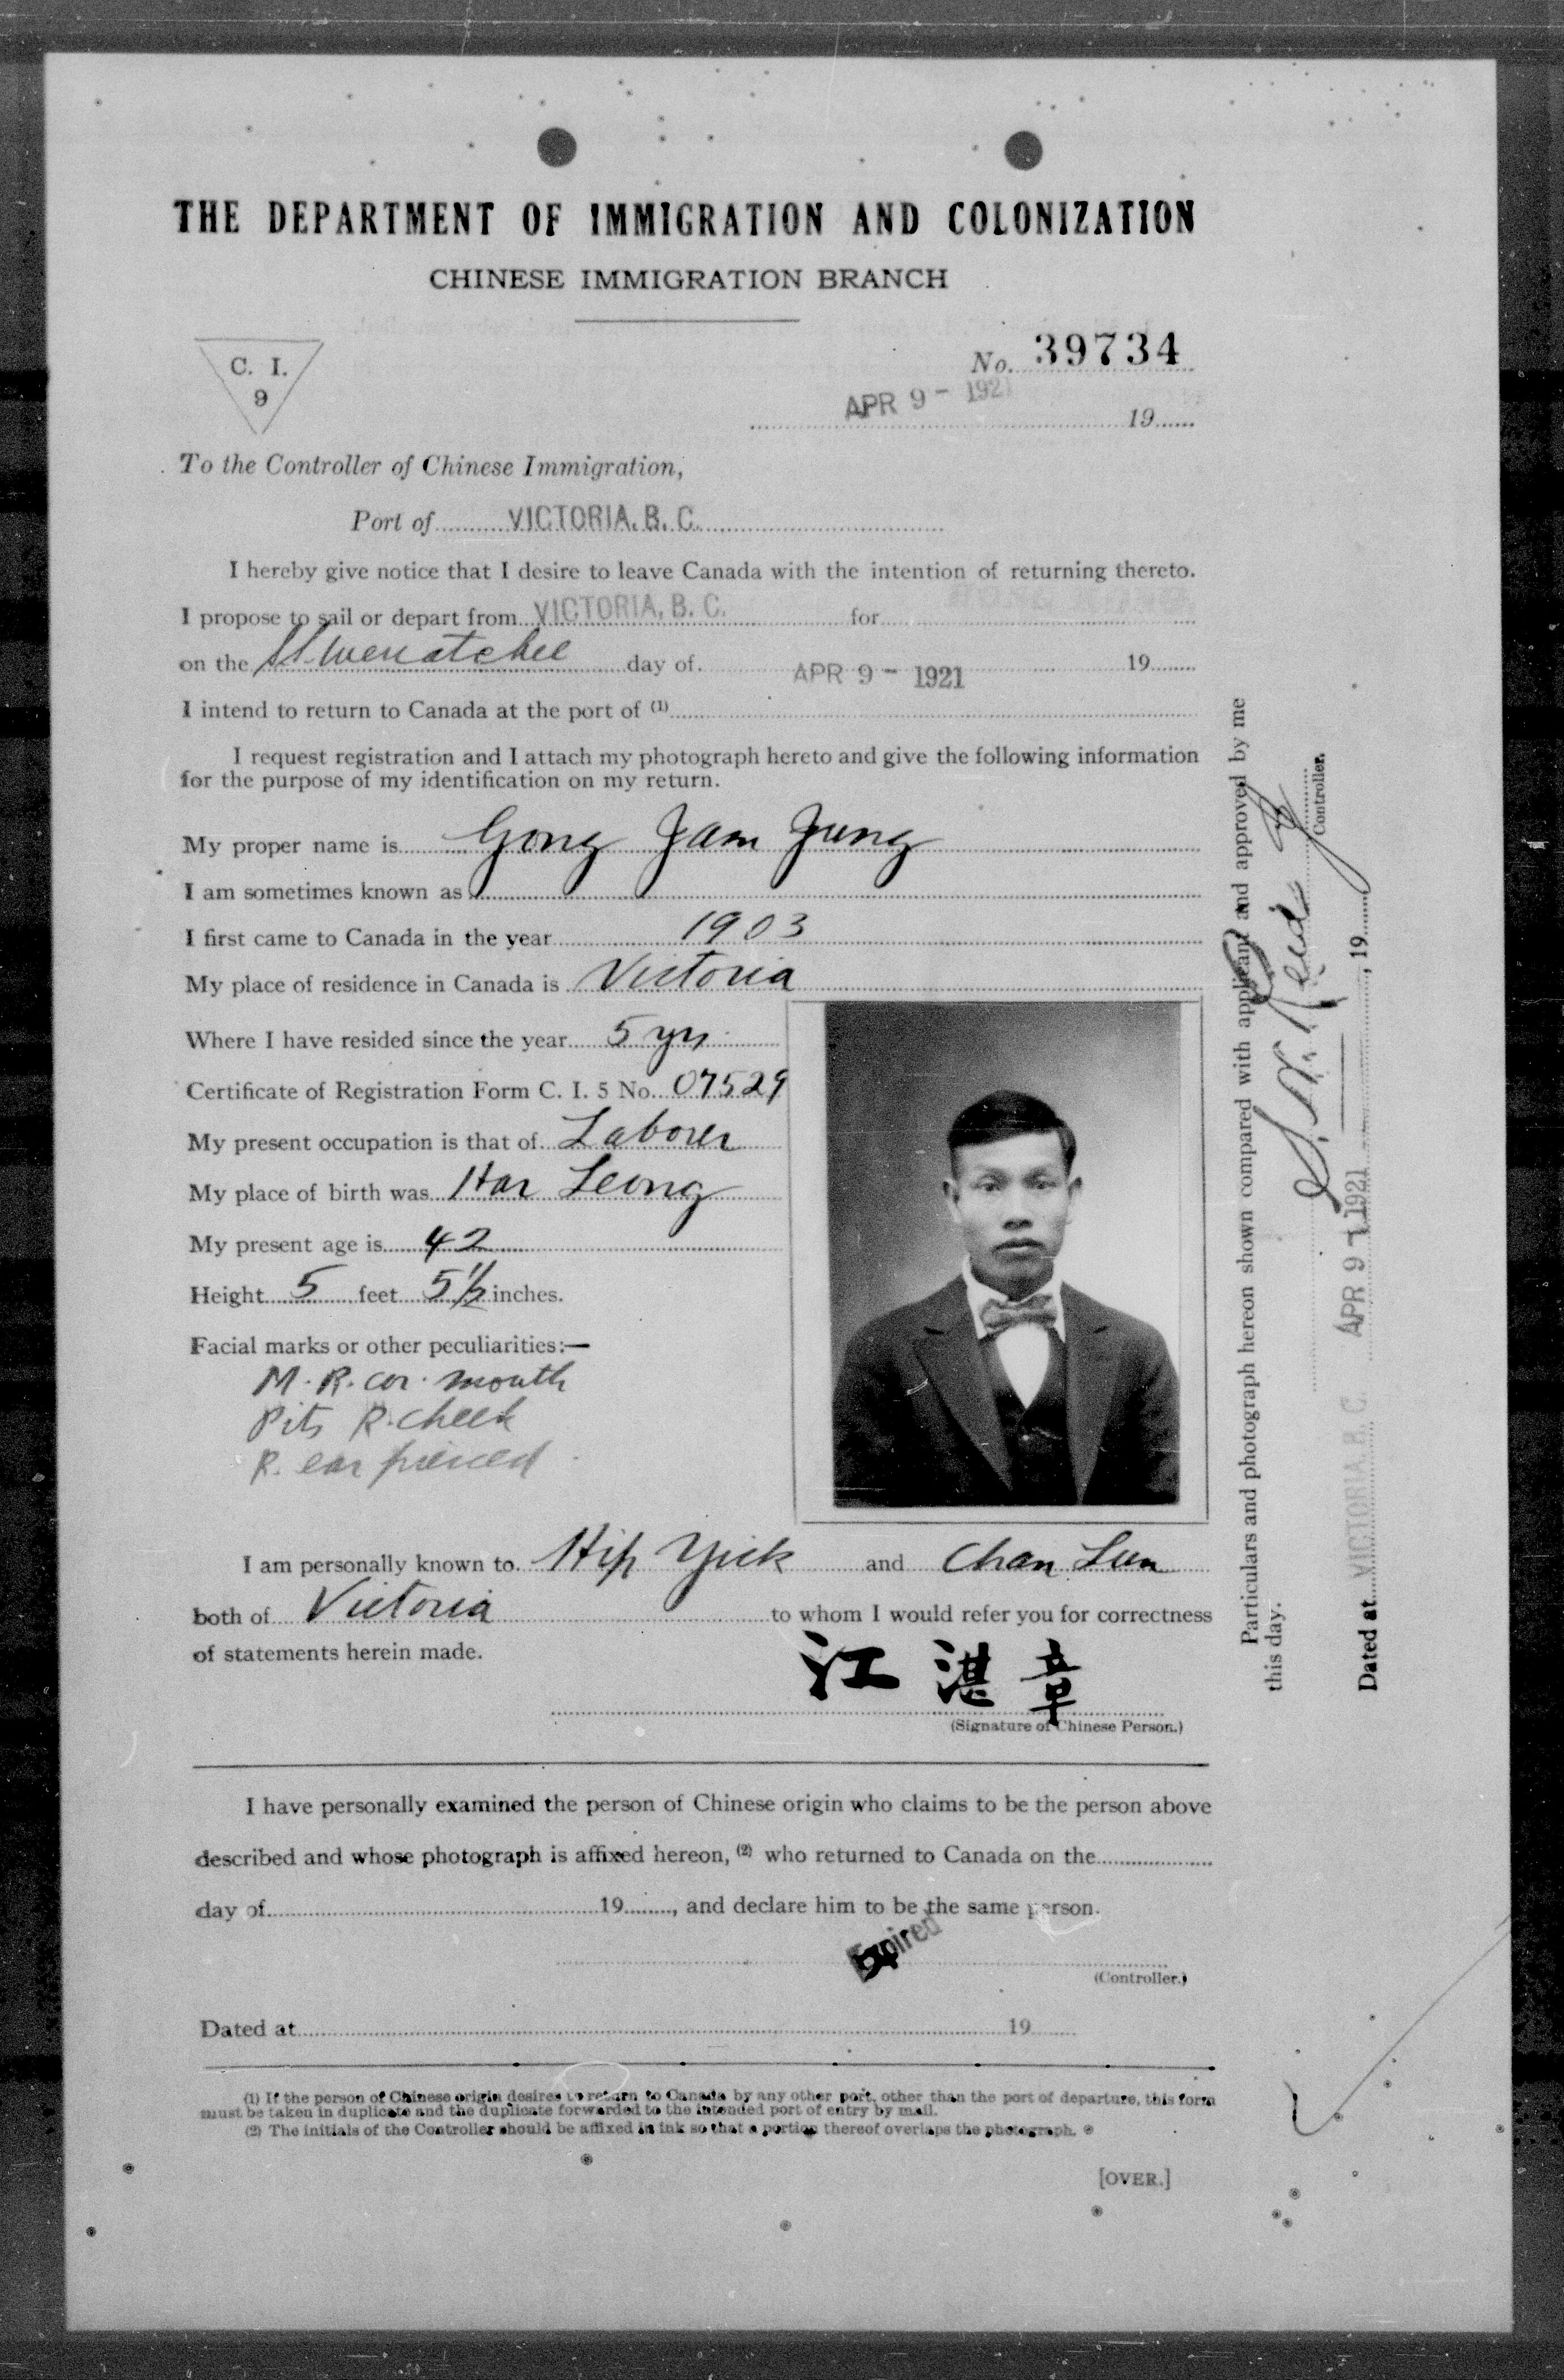 THE DEPARTMENT OF IMMIGRATION AND COLONIZATION
CHINESE IMMIGRATION BRANCH
C. I.
9
No. 39734
APR 9 - 1921 19
To the Controller of Chinese Immigration,
Port of VICTORIA, B. C.
I hereby give notice that I desire to leave Canada with the intention of returning thereto.
I propose to sail or depart from VICTORIA, B. C. for
on the SS. Wenatchee day of APR 9 - 1921 19
I intend to return to Canada at the port of (1)
I request registration and I attach my photograph hereto and give the following information
for the purpose of my identification on my return.
My proper name is Gong Jam Jung
I am sometimes known as
I first came to Canada in the year 1903
My place of residence in Canada is Victoria
Where I have resided since the year 5 yrs
Certificate of Registration Form C. I. 5 No. 07529
My present occupation is that of Laborer
My place of birth was Har Leong
My present age is 42
Height 5 feet 5½ inches.
Facial marks or other peculiarities:—
M. R. cor. mouth
Pits R. cheek
R. ear pierced
I am personally known to Hip Yick and Chan Lun
both of Victoria to whom I would refer you for correctness
of statements herein made.
江湛章
(Signature of Chinese Person.)
I have personally examined the person of Chinese origin who claims to be the person above
described and whose photograph is affixed hereon, (2) who returned to Canada on the
day of 19, and declare him to be the same person.
Expired
(Controller.)
Dated at 19
(1) If the person of Chinese origin desires to return to Canada by any other port, other than the port of departure, this form
must be taken in duplicate and the duplicate forwarded to the intended port of entry by mail.
(2) The initials of the Controller should be affixed in ink so that a portion thereof overlaps the photograph.
[OVER.]
Particulars and photograph hereon shown compared with applicant and approved by me
this day.
Controller.
Dated at VICTORIA, B. C. APR 9 - 1921, 19